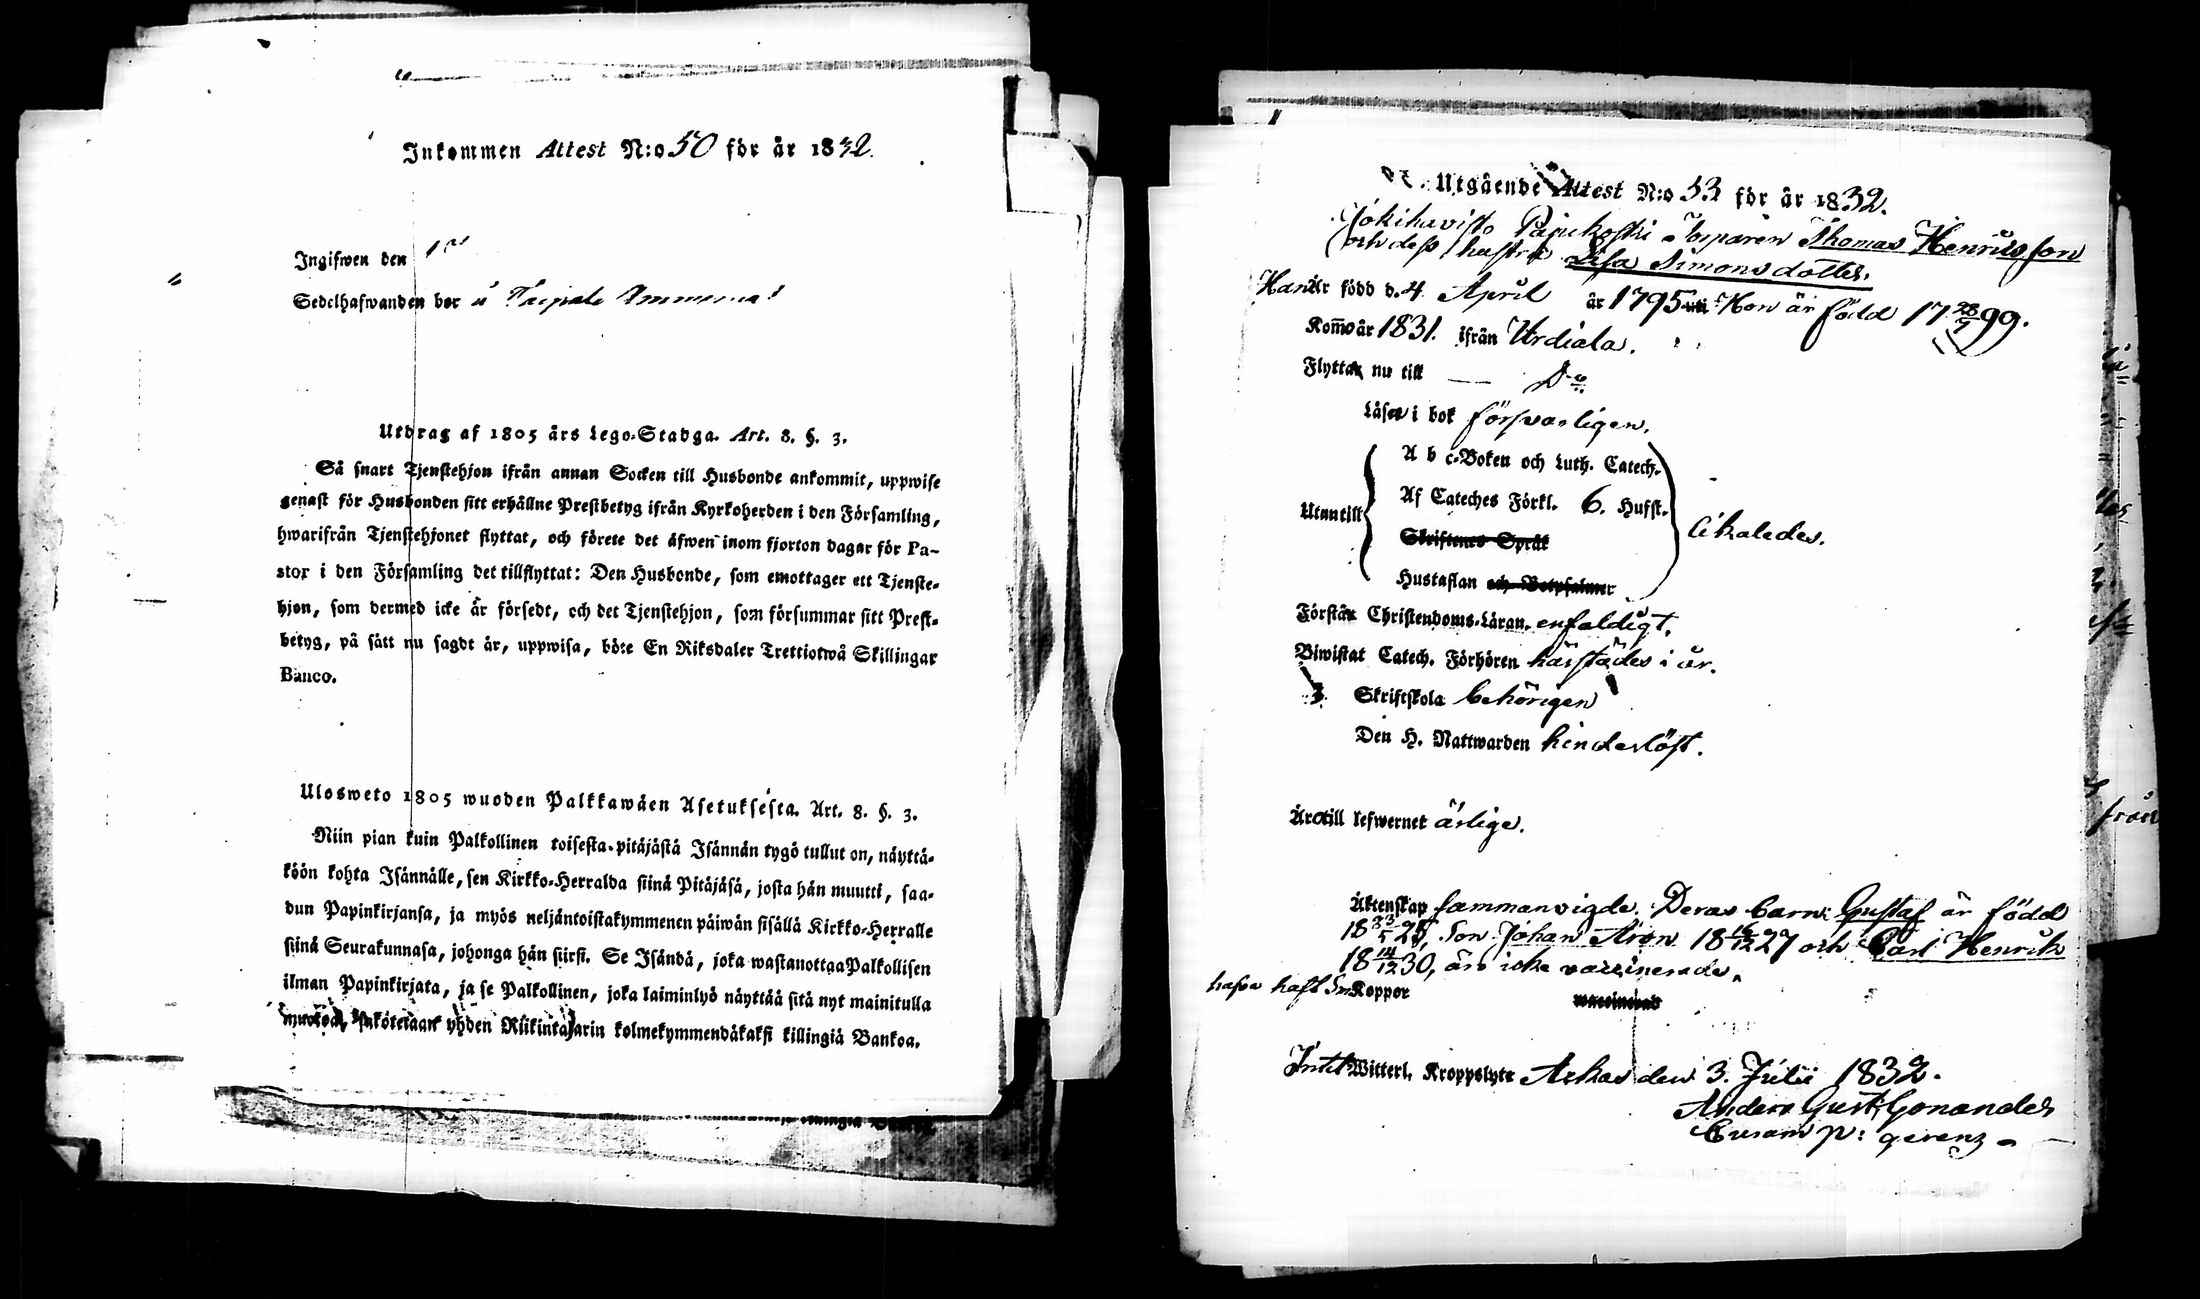 Inkommen Attest N:o 50 för år 1832.
Ingifwen den
Sedelhafwanden bor å Taipale
Utdrag af 1805 års Lego-Stadga. Art. 8. §. 3.
Så snart Tjenstehjon ifrån annan Socken till Husbonde ankommit, uppwise
genast för Husbonden sitt erhållne Prestbetyg ifrån Kyrkoherden i den Församling,
hwarifrån Tjenstehjonet flyttat, och förete det äfwen inom fjorton dagar för Pa-
stor i den Församling det tillflyttat: Den Husbonde, som emottager ett Tjenste-
hjon, som dermed icke är försedt, och det Tjenstehjon, som försummar sitt Prest-
betyg, på sätt nu sagdt är, uppwisa, böte En Riksdaler Trettiotwå Skillingar
Banco.
Ulosweto 1805 wuoden Palkkawäen Asetuksesta. Art. 8. §. 3.
Niin pian kuin Palkollinen toisesta pitäjästä Isännän tygö tullut on, näyttä-
köön kohta Isännälle, sen Kirkko-Herralda siinä Pitäjäsä, josta hän muutti, saa-
dun Papinkirjansa, ja myös neljäntoistakymmenen päiwän sisällä Kirkko-Herralle
siinä Seurakunnasa, johonga hän siirsi. Se Isändä, joka wastanottaa Palkollisen
ilman Papinkirjata, ja se Palkollinen, joka laiminlyö näyttää sitä nyt mainitulla
muotoa, sakotetaan yhden Riikintalarin kolmekymmendäkaksi killingiä Bankoa.
Utgående Attest N:o 53 för år 1832.
Jokihavisto Pajukoski Torparen Thomas Henricsson
och dess hustru Lisa Simonsdotter.
Han är född d. 4 April år 1795 Hon är född 17 28/7 99.
Kom̄o år 1831. ifrån Urdiala.
Flytta nu till — D:o
Läsa i bok försvarligen.
A b c-Boken och Luth. Catech.
Utantill Af Cateches Förkl. 6. Hufst. likaledes.
Skriftenes Språk
Hustaflan och Botpsalmer
Förstå Christendoms-Läran. enfaldigt.
Biwistat Catech. Förhören härstädes i år.
Skriftskola behörigen
Den H. Nattwarden hinderlöst.
Äro till lefwernet ärlige.
Äktenskap sammanvigde. Deras barn: Gustaf är född
18 23/5 25, Son Johan Aron 18 16/12 27 och Carl Henrik
18 14/12 30, äro icke vaccinerade.
hafva haft Koppor vaccinerad
Intet Witterl. Kroppslyte Ackas den 3. Julii 1832.
Anders Gust. Gonander
Curam p: gerens